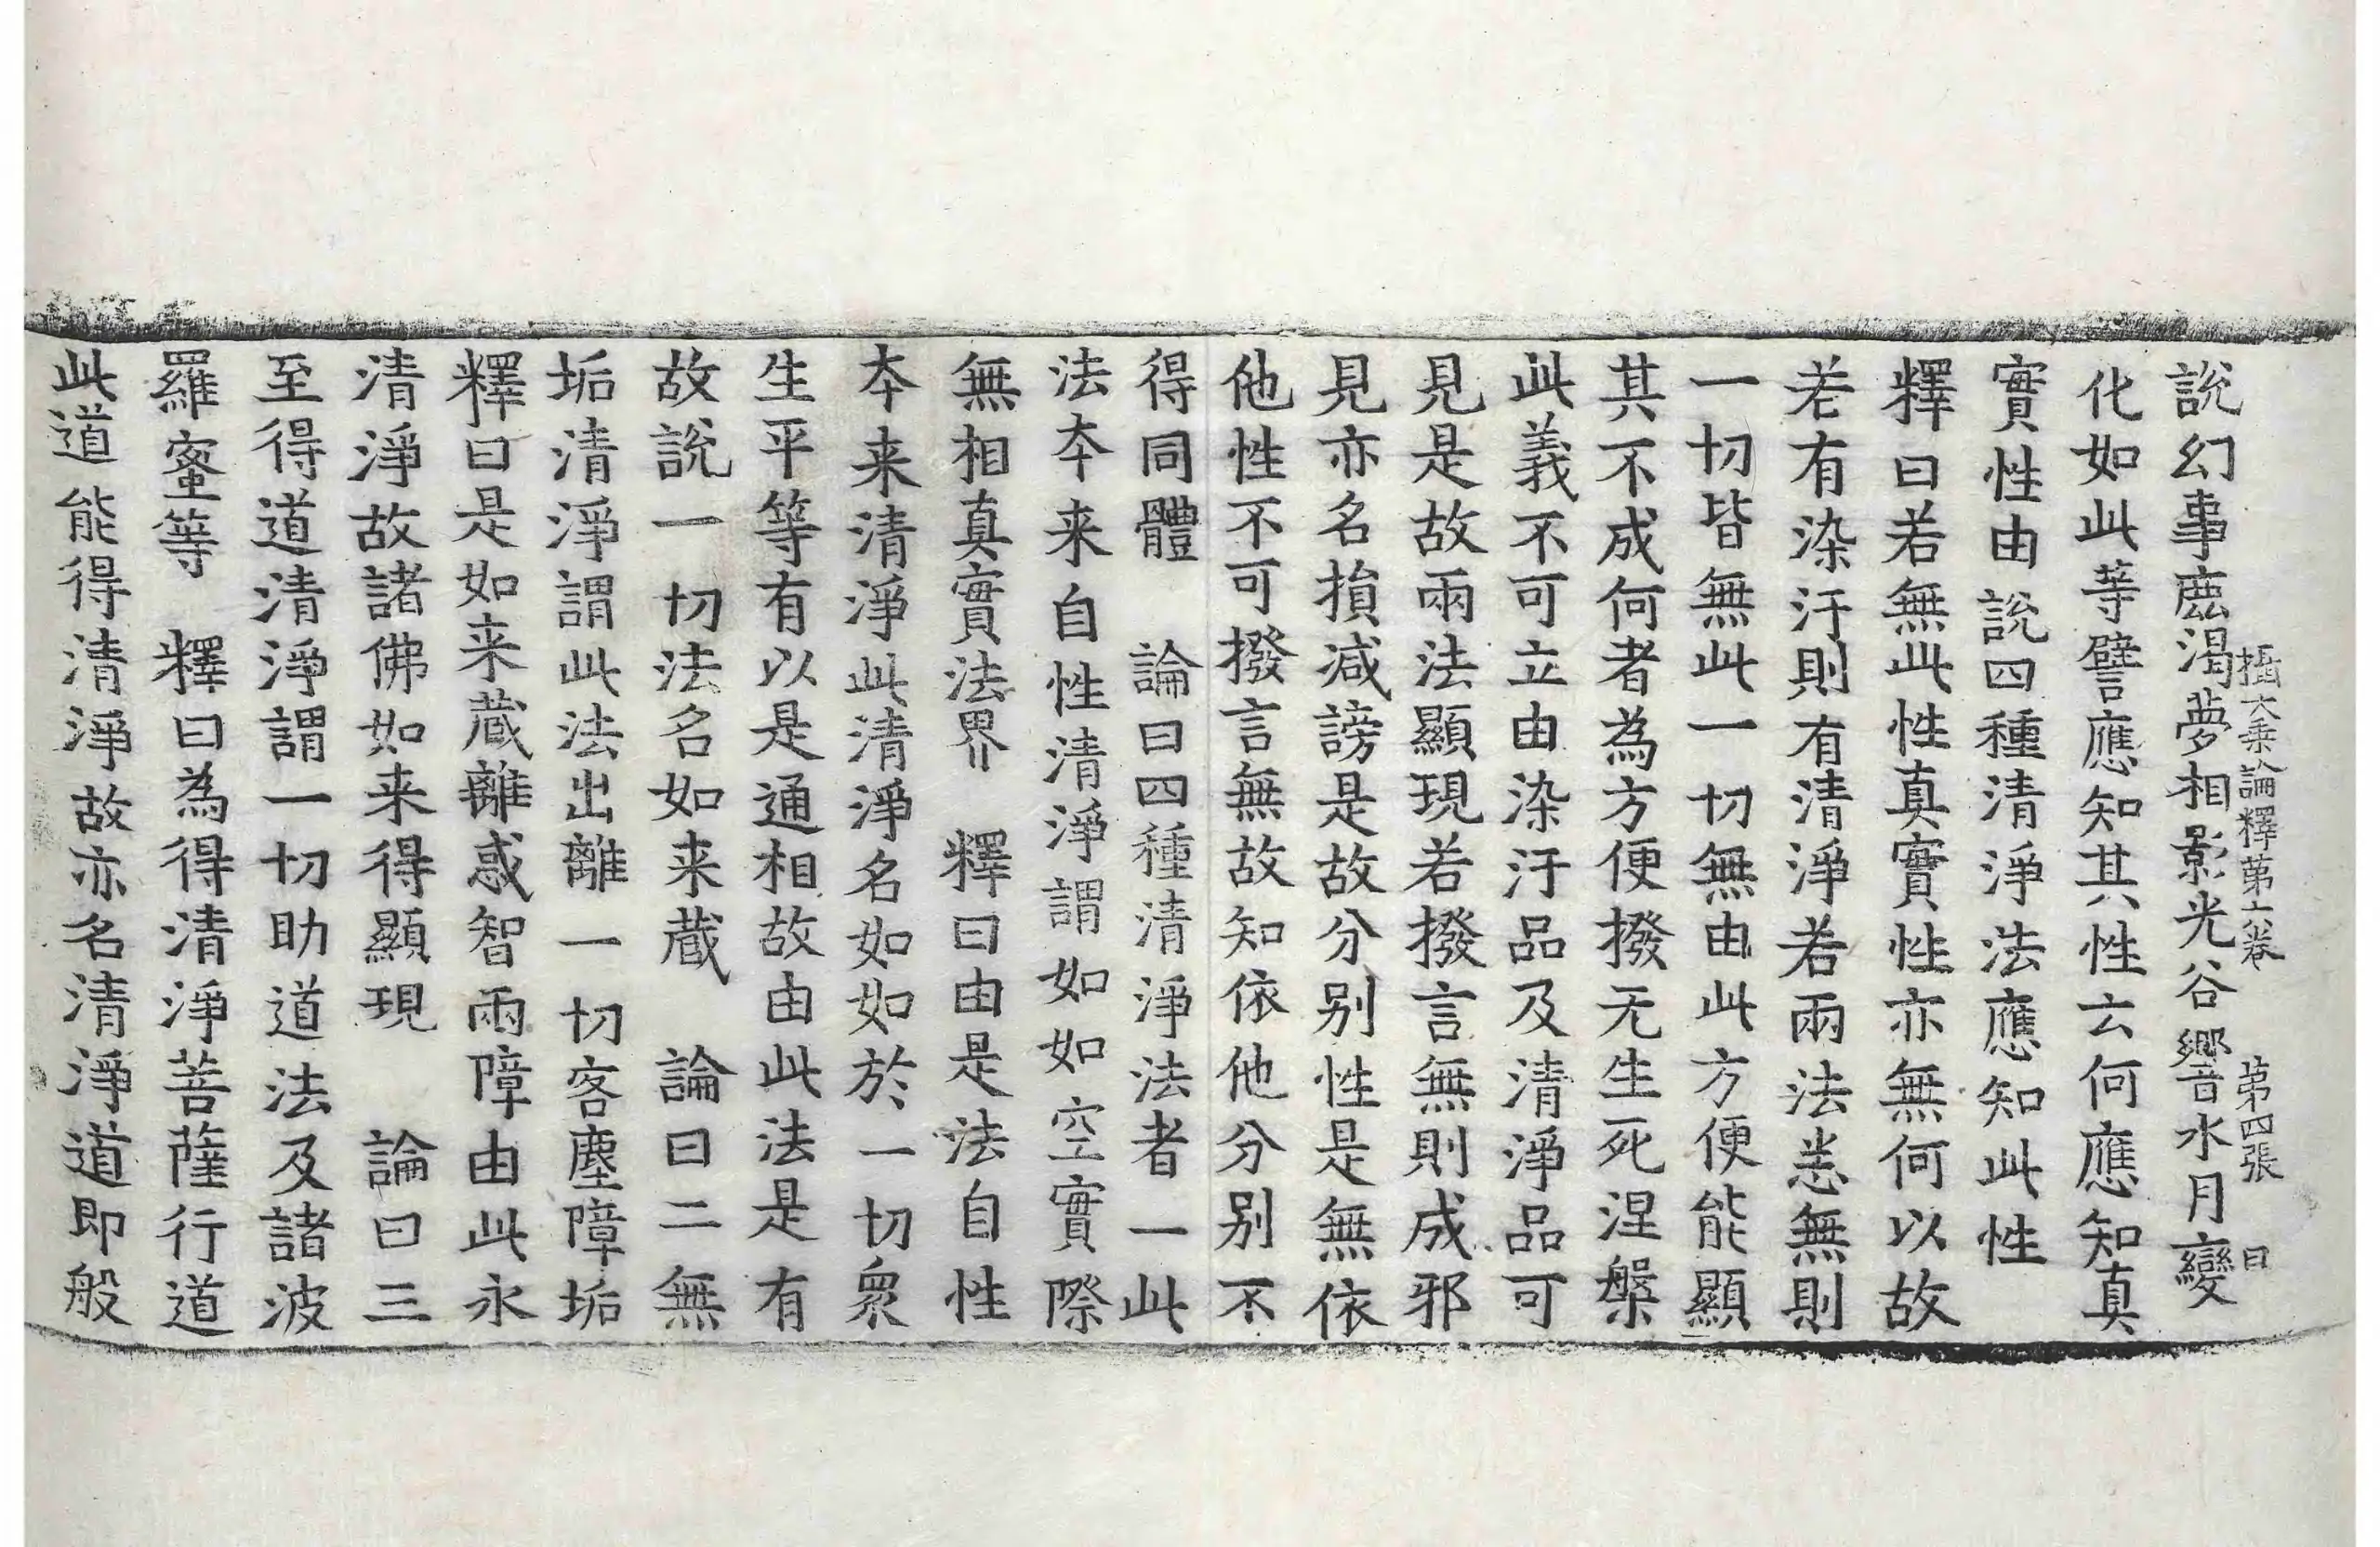 攝大乘論釋第六卷 第四張 曰
說幻事鹿渴夢相影光谷響水月變
化如此等譬應知其性云何應知真
實性由說四種清淨法應知此性
釋曰若無此性真實性亦無何以故
若有染汙則有清淨若兩法悉無則
一切皆無此一切無由此方便能顯
其不成何者為方便撥无生死涅槃
此義不可立由染汙品及清淨品可
見是故兩法顯現若撥言無則成邪
見亦名損减謗是故分別性是無依
他性不可撥言無故知依他分別不
得同體 論曰四種清淨法者一此
法本来自性清淨謂如如空實際
無相真實法界 釋曰由是法自性
本来清淨此清淨名如如於一切衆
生平等有以是通相故由此法是有
故說一切法名如来蔵 論曰二無
垢清淨謂此法出離一切客塵障垢
釋曰是如来蔵離惑智兩障由此永
清淨故諸佛如来得顯現 論曰三
至得道清淨謂一切助道法及諸波
羅蜜等 釋曰為得清淨菩薩行道
此道能得清淨故亦名清淨道即般